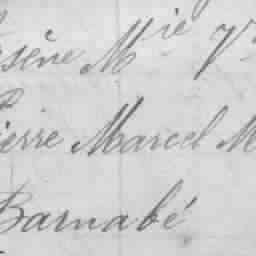 sène Mie
ierre Marcel M
Barnabé